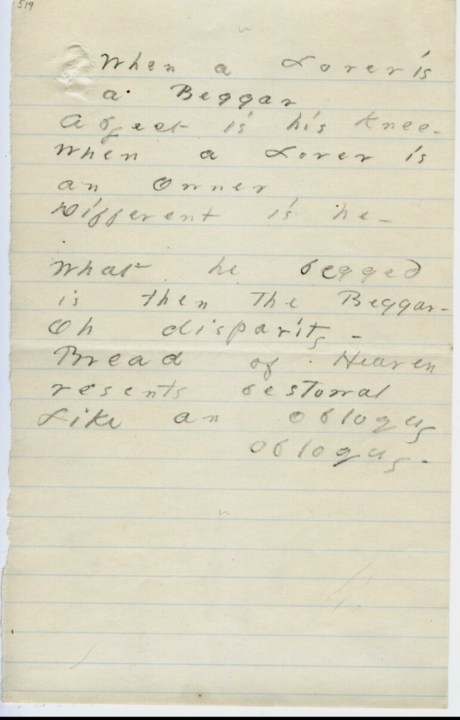 519
When a Lover is
a Beggar
Abject is his Knee -
When a Lover is
an Owner
Different is he -
What he begged
is then the Beggar -
Oh disparity -
Bread of Heaven
resents bestowal
Like an obloquy
obloquy -